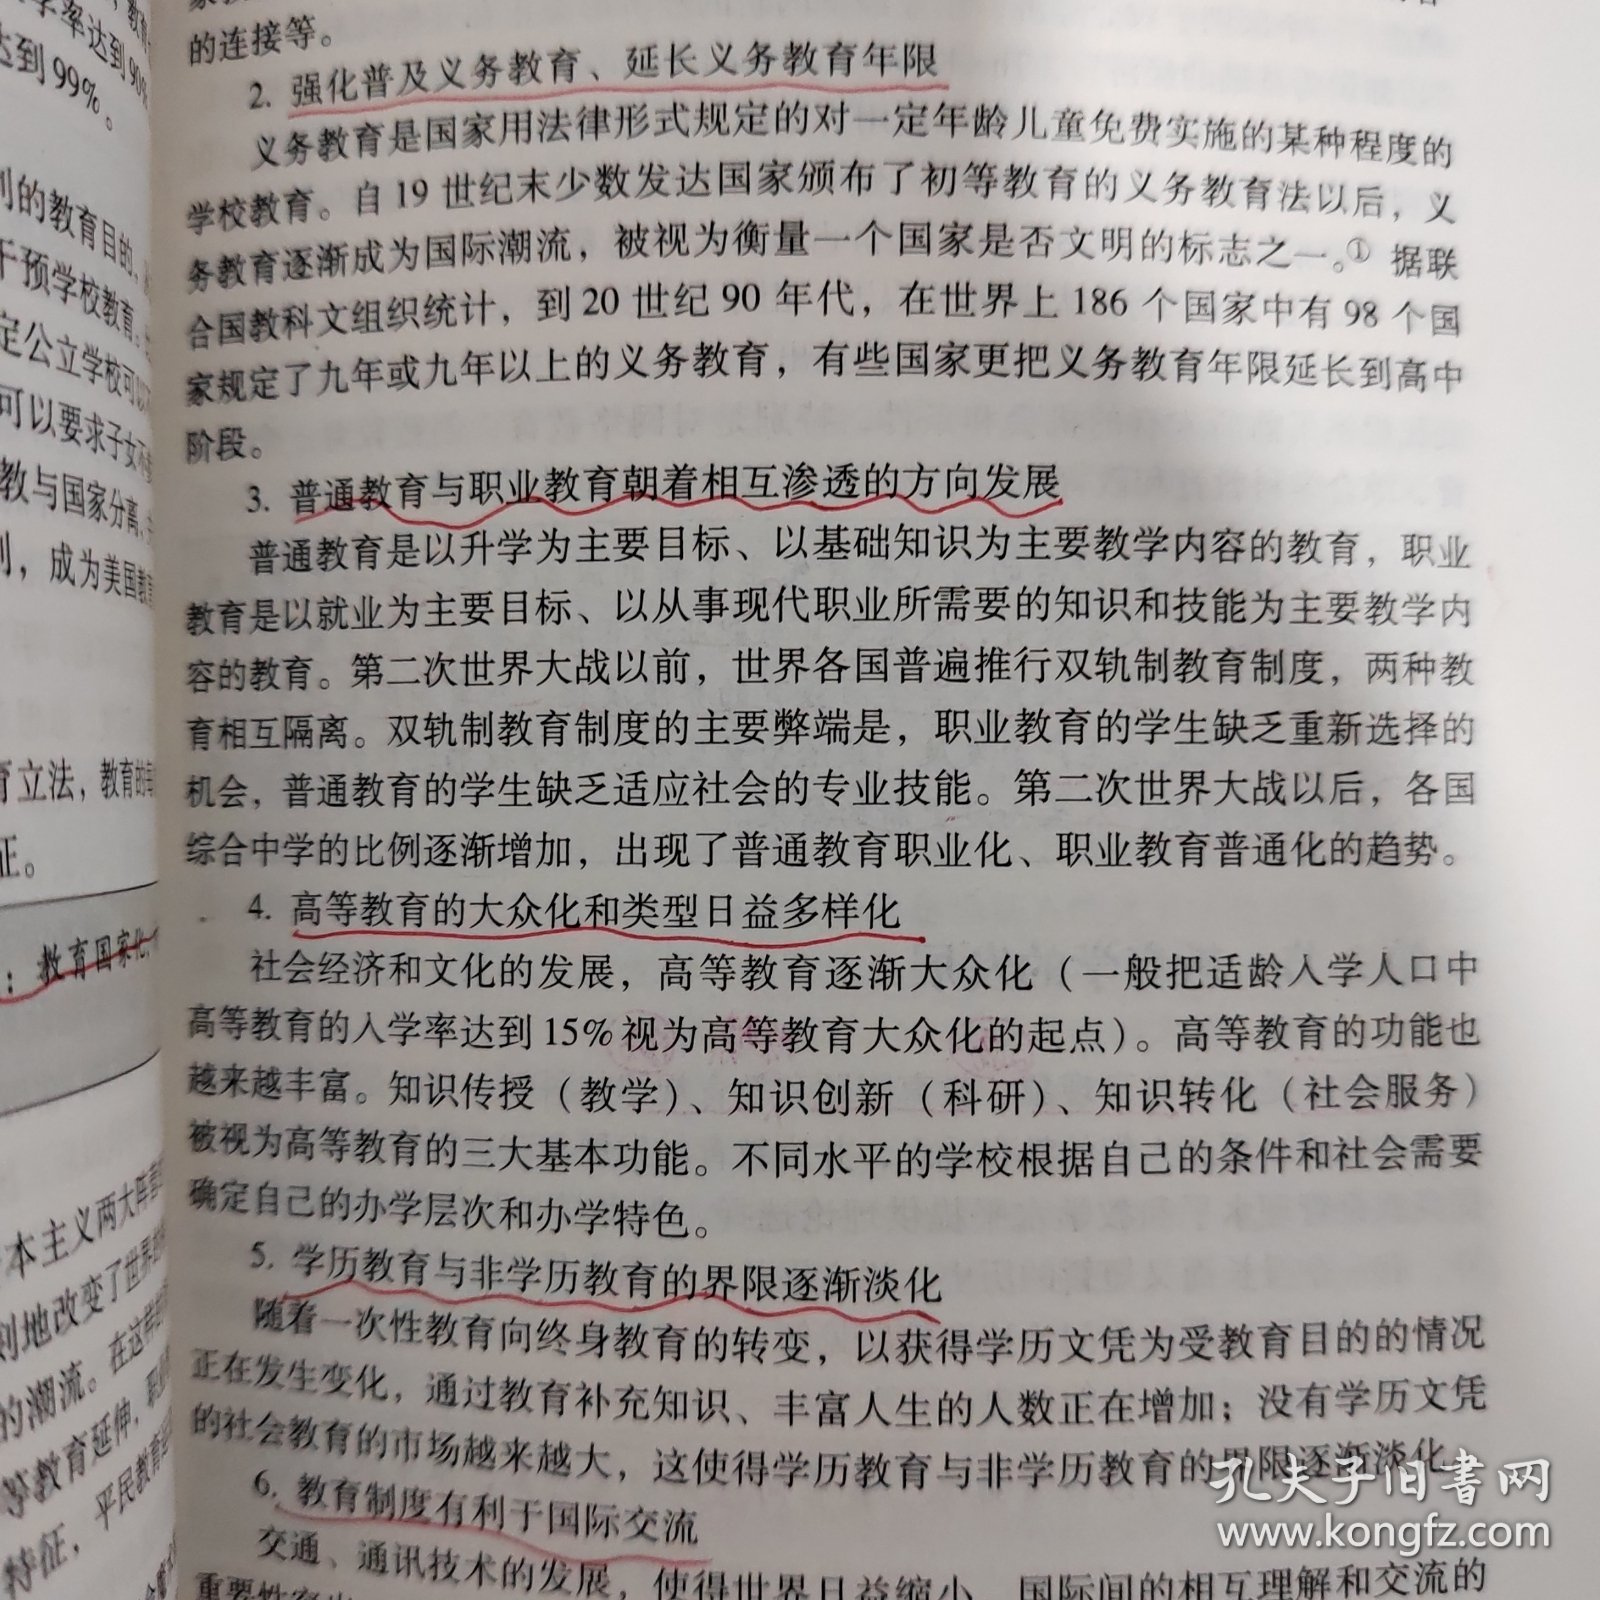 率达到90%
达到99%。
的教育目的
干预学校教育
定公立学校可以
可以要求子女不
教与国家分离
，成为美国教育
育立法，教育的
证。
：教育国家化
本主义两大阵营
刻地改变了世界
的潮流。在这样
等教育延伸，职
平民教育
特征，
的连接等。
2. 强化普及义务教育、延长义务教育年限
义务教育是国家用法律形式规定的对一定年龄儿童免费实施的某种程度的
学校教育。自19世纪末少数发达国家颁布了初等教育的义务教育法以后，义
务教育逐渐成为国际潮流，被视为衡量一个国家是否文明的标志之一。① 据联
合国教科文组织统计，到20世纪90年代，在世界上186个国家中有98个国
家规定了九年或九年以上的义务教育，有些国家更把义务教育年限延长到高中
阶段。
3. 普通教育与职业教育朝着相互渗透的方向发展
普通教育是以升学为主要目标、以基础知识为主要教学内容的教育，职业
教育是以就业为主要目标、以从事现代职业所需要的知识和技能为主要教学内
容的教育。第二次世界大战以前，世界各国普遍推行双轨制教育制度，两种教
育相互隔离。双轨制教育制度的主要弊端是，职业教育的学生缺乏重新选择的
机会，普通教育的学生缺乏适应社会的专业技能。第二次世界大战以后，各国
综合中学的比例逐渐增加，出现了普通教育职业化、职业教育普通化的趋势。
4. 高等教育的大众化和类型日益多样化
社会经济和文化的发展，高等教育逐渐大众化（一般把适龄入学人口中
高等教育的入学率达到15%视为高等教育大众化的起点）。高等教育的功能也
越来越丰富。知识传授（教学）、知识创新（科研）、知识转化（社会服务）
被视为高等教育的三大基本功能。不同水平的学校根据自己的条件和社会需要
确定自己的办学层次和办学特色。
5. 学历教育与非学历教育的界限逐渐淡化
随着一次性教育向终身教育的转变，以获得学历文凭为受教育目的的情况
正在发生变化，通过教育补充知识、丰富人生的人数正在增加；没有学历文凭
的社会教育的市场越来越大，这使得学历教育与非学历教育的界限逐渐淡化
6. 教育制度有利于国际交流
交通、通讯技术的发展，使得世界日益缩小，国际间的相互理解和交流的
重要性
孔夫子旧书网
www.kongfz.com